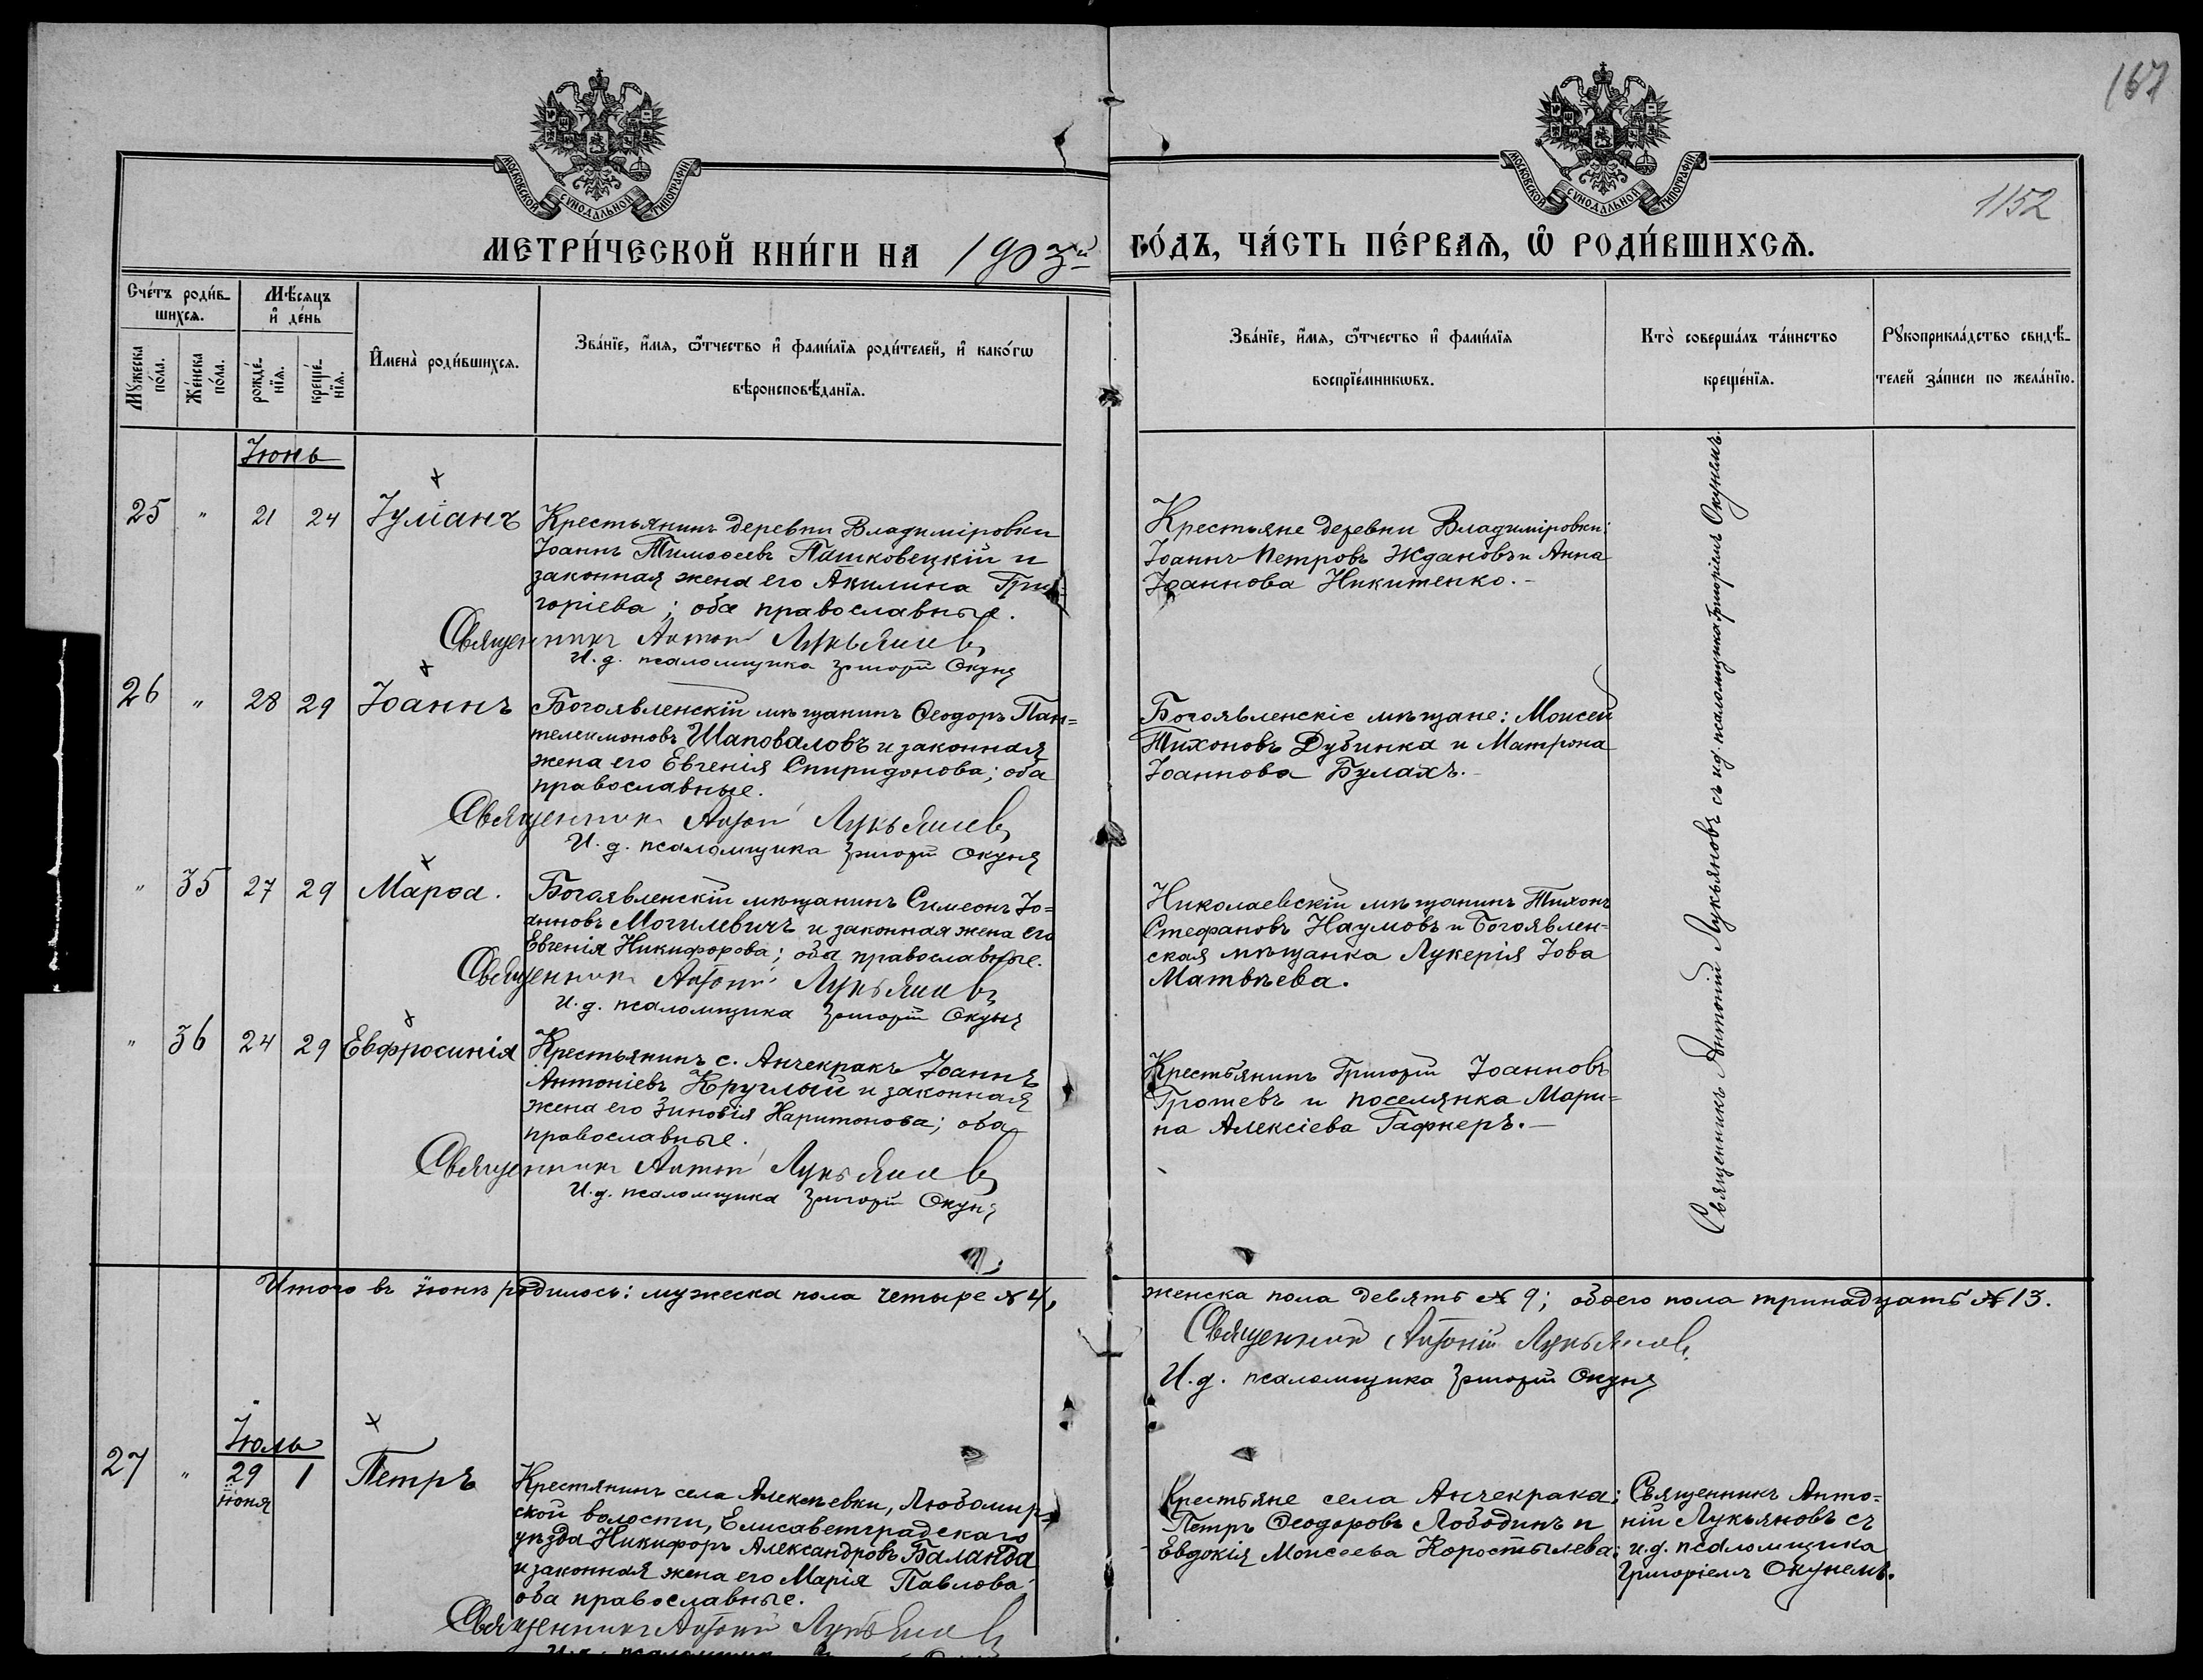 167
1152
МОСКОВСКОЙ СѴНОДАЛЬНОЙ ТИПОГРАФІИ
МОСКОВСКОЙ СѴНОДАЛЬНОЙ ТИПОГРАФІИ
МЕТРИ́ЧЕСКОЙ КНИ́ГИ НА 1903й ГО́ДЪ, ЧА́СТЬ ПЕ́РВАЯ, Ѿ РОДИ́ВШИХСЯ.
Сче́тъ роди́в-
шихся.
Мꙋ́жеска по́ла.
Же́нска по́ла.
Мѣ́сяцъ
и҆ де́нь
рожде́-
нїя.
креще́-
нїя.
И҆мена̀ роди́вшихся.
Зва́нїе, и҆́мя, ѻ҆́тчество и҆ фами́лїя роди́телей, и҆ како́гѡ
вѣроисповѣ́данїя.
Зва́нїе, и҆́мя, ѻ҆́тчество и҆ фами́лїя
воспрїе́мникѡвъ.
Кто̀ соверша́лъ та́инство
креще́нїя.
Рꙋкоприкла́дство свидѣ́-
телей за́писи по жела́нїю.
Іюнь
25 " 21 24 Іуліанъ
Крестьянинъ деревни Владиміровки
Іоаннъ Тимоѳеевъ Пашковецкій и
законная жена его Акилина Гри-
горіева; оба православные.
Священникъ Антоній Лукьяновъ
И. д. псаломщика Григорій Окунь
Крестьяне деревни Владиміровки:
Іоаннъ Петровъ Ждановъ и Анна
Іоаннова Никитенко.-
26 " 28 29 Іоаннъ
Богоявленскій мѣщанинъ Ѳеодоръ Пан=
телеимоновъ Шаповаловъ и законная
жена его Евгенія Спиридонова; оба
православные.
Священникъ Антоній Лукьяновъ
И. д. псаломщика Григорій Окунь
Богоявленскіе мѣщане: Моисей
Тихоновъ Дубинка и Матрона
Іоаннова Булахъ.-
" 35 27 29 Марѳа.
Богоявленскій мѣщанинъ Симеонъ Іо=
анновъ Могилевичъ и законная жена его
Евгенія Никифорова; оба православные.
Священникъ Антоній Лукьяновъ
И. д. псаломщика Григорій Окунь
Николаевскій мѣщанинъ Тихонъ
Стефановъ Наумовъ и Богоявлен=
ская мѣщанка Лукерія Іова
Матвѣева.
" 36 24 29 Евфросинія
Крестьянинъ с. Анчекракъ Іоаннъ
Антоніевъ Круглый и законная
жена его Зиновія Харитонова; оба
православные.
Священникъ Антоній Лукьяновъ
И. д. псаломщика Григорій Окунь
Крестьянинъ Григорій Іоанновъ
Грошевъ и поселянка Мари=
на Алексіева Гафнеръ.-
Священникъ Антоній Лукьяновъ съ и.д. псаломщика Григоріемъ Окунемъ.
Итого въ Іюнѣ родилось: мужеска пола четыре № 4, женска пола девять № 9; обоего пола тринадцать № 13.
Священникъ Антоній Лукьяновъ
И. д. псаломщика Григорій Окунь
Іюль
27 " 29 іюня 1 Петръ
Крестянинъ села Алексѣевки, Любомир=
ской волости, Елисаветградскаго
уѣзда Никифоръ Александровъ Баланда
и законная жена его Марія Павлова
оба православные.
Священникъ Антоній Лукьяновъ
Крестьяне села Анчекрака:
Петръ Ѳеодоровъ Лободинъ и
Евдокія Моисеева Коростылева.
Священникъ Анто=
ній Лукьяновъ съ
и.д. псаломщика
Григоріемъ Окунемъ.